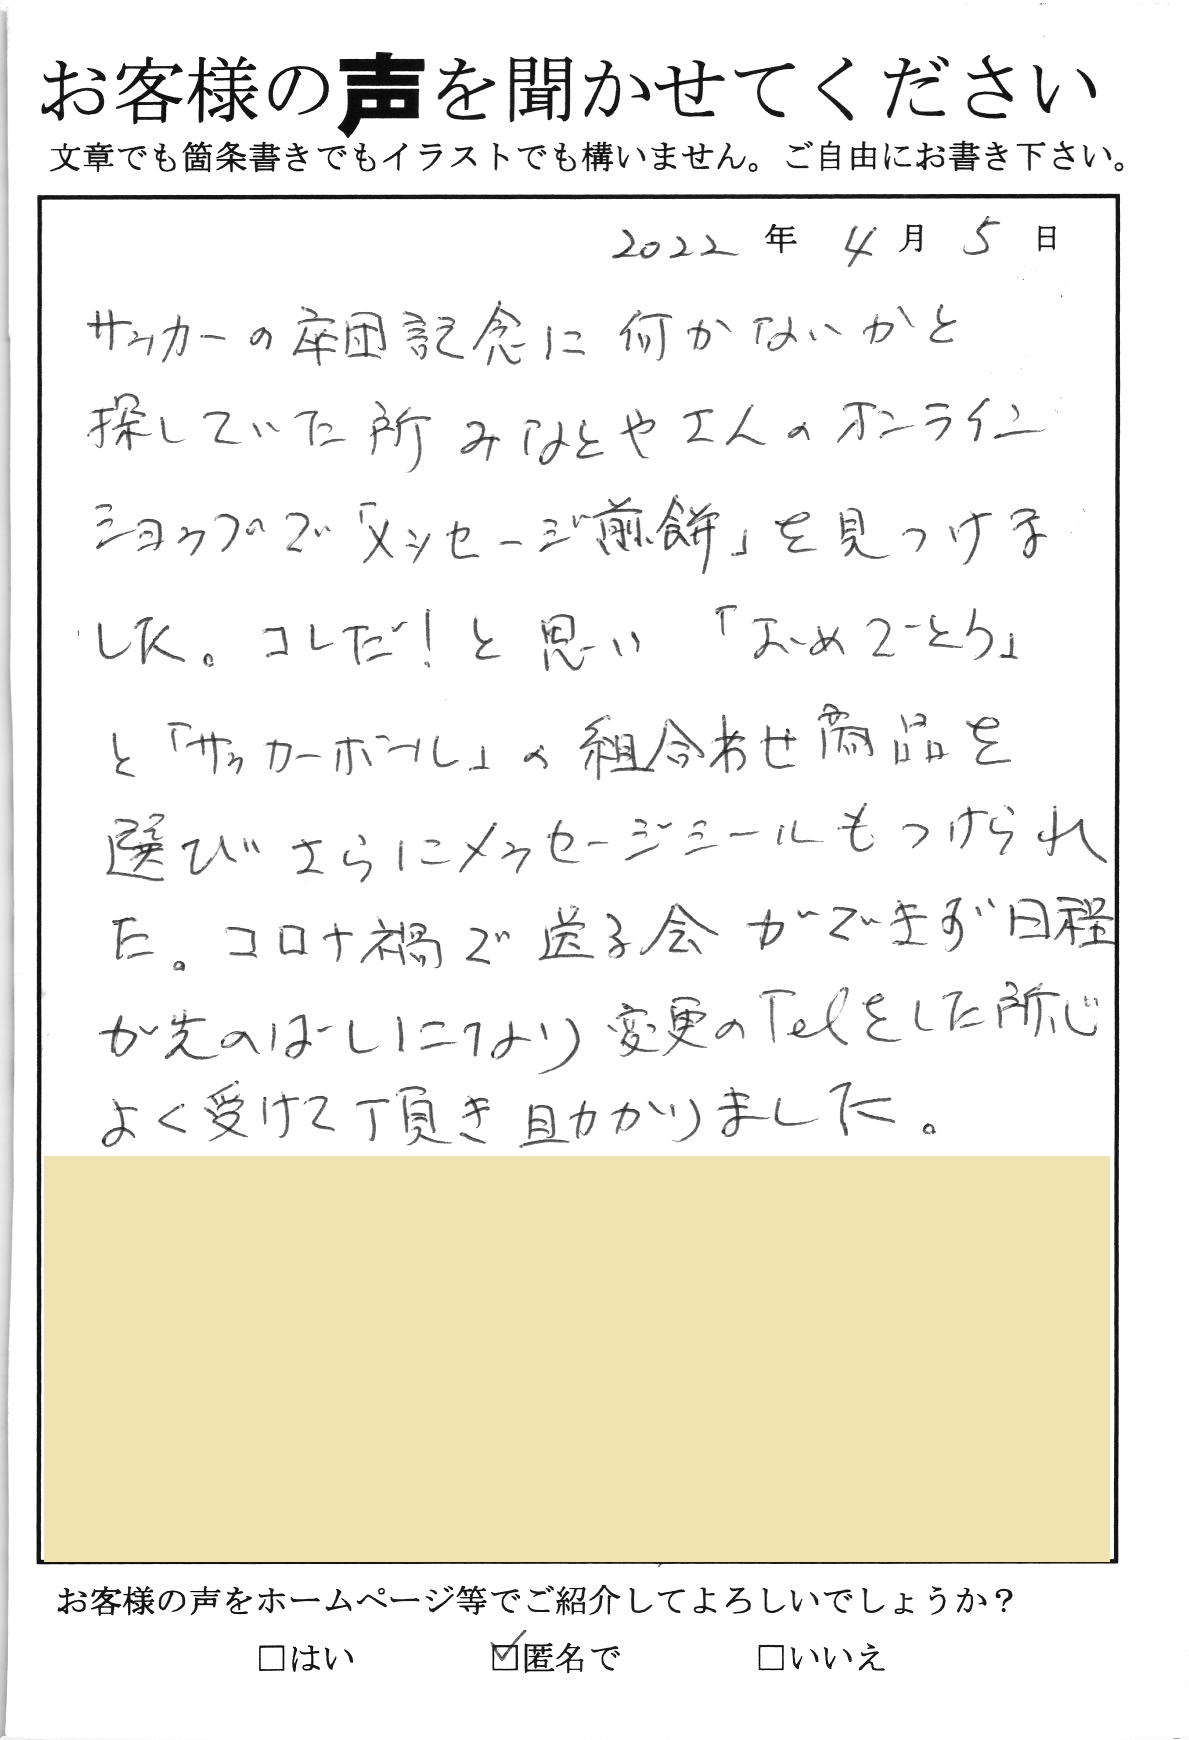 お客様の声を聞かせてください
文章でも箇条書きでもイラストでも構いません。ご自由にお書き下さい。
2022年 4月 5日
サッカーの卒団記念に何かないかと
探していた所 みなとやさんのオンライン
ショップで「メッセージ煎餅」を見つけま
した。コレだ!と思い 「おめでとう」
と「サッカーボール」の組合わせ商品を
選びさらにメッセージシールもつけられ
た。コロナ禍で送る会ができず日程
が先のばしになり 変更のTelをした所心
よく受けて頂き 助かりました。
お客様の声をホームページ等でご紹介してよろしいでしょうか?
□はい ☑匿名で □いいえ